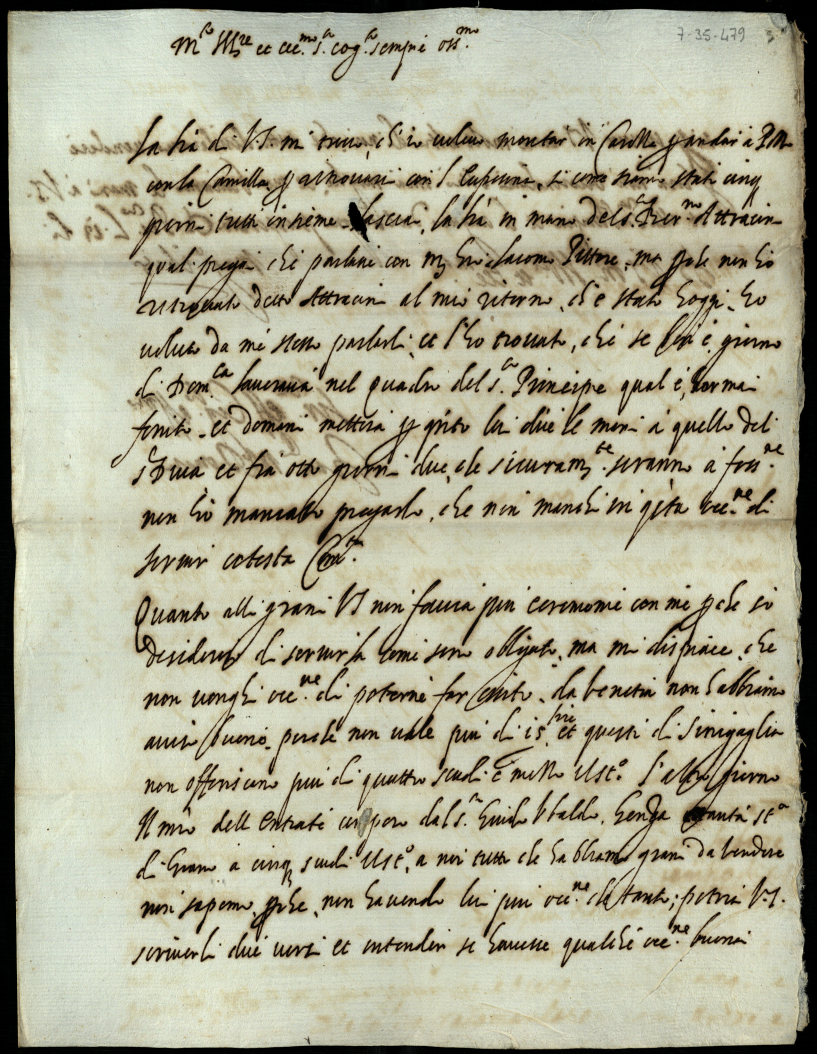 7-35-479
M.co Ill.re et ecc.mo s.r cog.to sempre oss.mo
La l'ra di VS. mi trovò, ch'io volevo montar in Carrozza p andar à
con la Camilla, p ritrovarsi con si come siamo stati cinq
giorni tutti insieme, lasciai la l'ra in mano del s.r
qual pregai che parlassi con m. Pittore, ma pche non hò
ritrovato detto al mio ritorno, ch'è stato hoggi, hò
voluto da me stesso parlarli, et l'ho trovato, che se ben è giorno
di Dom.ca lavorava nel quadro del s.r Principe qual è hormai
finito, et domani metterà p q'sto lui due le mani à quello del
s.r Duca et frà otto giorni due, che sicuram.te saranno à
non hò mancato pregarlo, che non manchi in q'sta occ.ne di
servir cotesta
Quanto alli grani VS non faccia piu ceremonie con me pche io
desidero di servirla come sono obligato, ma mi dispiace, che
non venghi occ.ne di poterne far esito, da Venetia non habbiamo
avisi buoni, perche non vale piu di 15 lire et questi di Sinigaglia
non offeriscano piu di quattro scudi è mezzo l'altro giorno
Il m.ro dell'entrate dal s.r Guido Ubaldo
di Grano a cinq scudi a noi tutti che habbiamo grani da vendere
non sapemo pche, non havendo lui piu occ.ne di tanto; potria V.S.
scriverli dui versi et intender se havesse qualche occ.ne buona